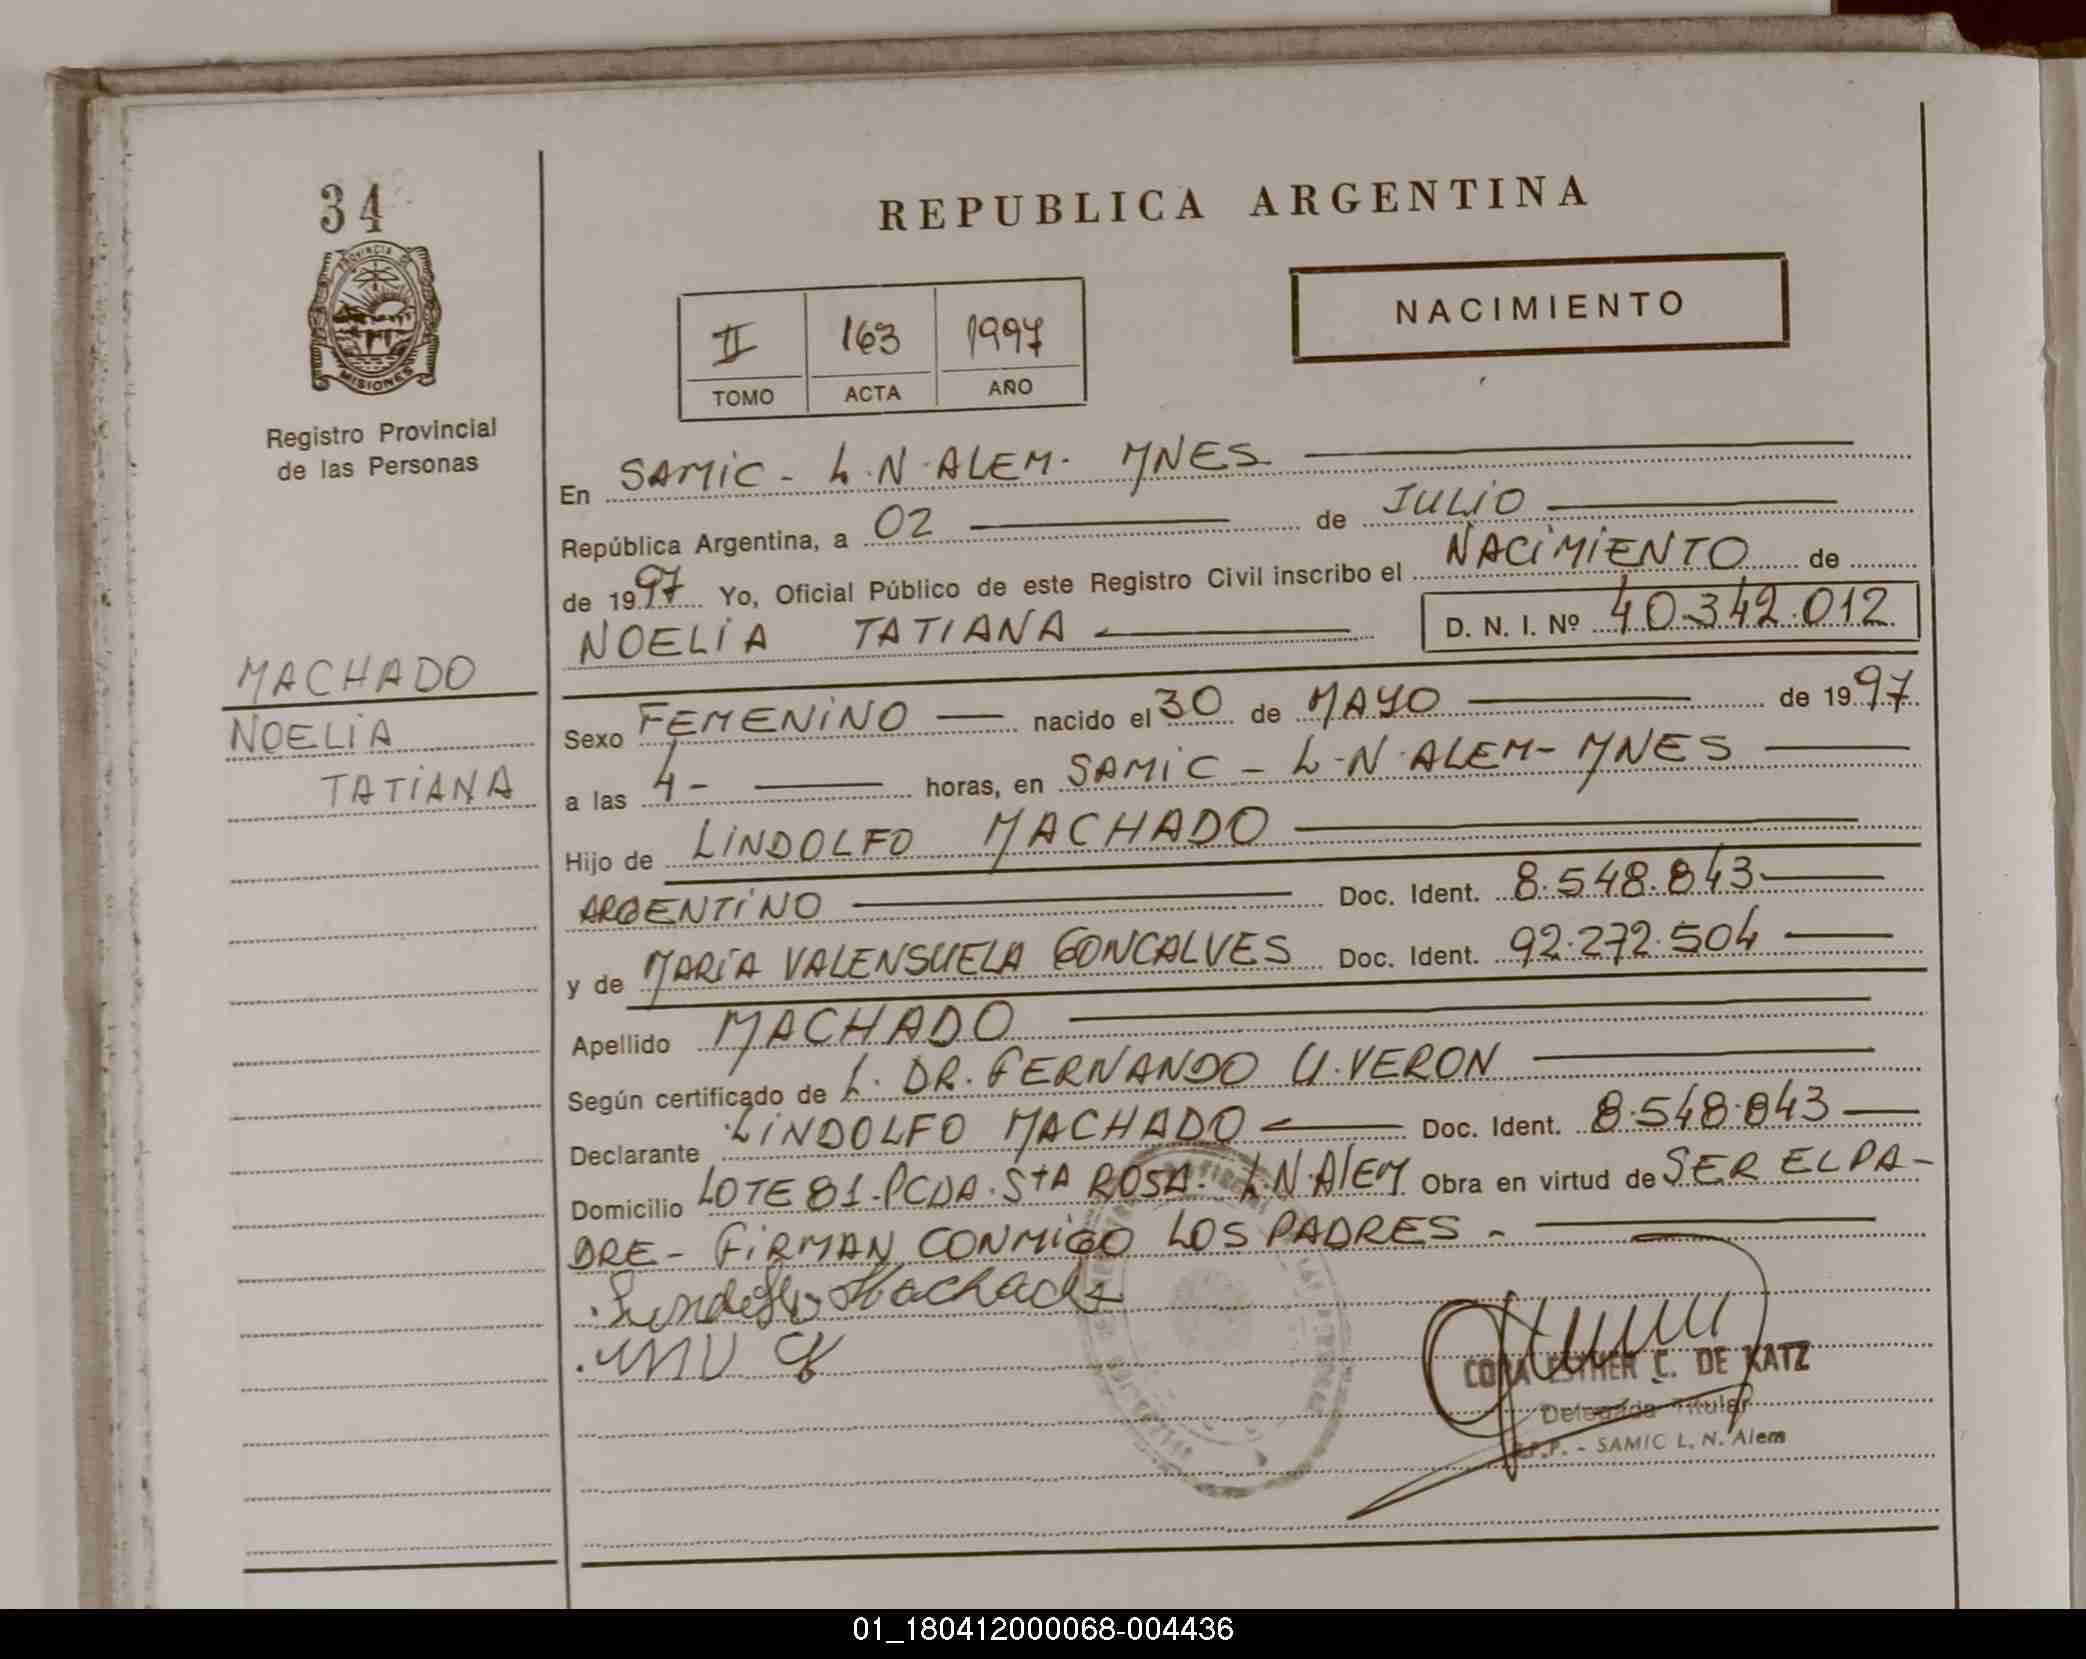 34
PROVINCIA DE
MISIONES
Registro Provincial
de las Personas
REPUBLICA ARGENTINA
NACIMIENTO
II 163 1997
TOMO ACTA AÑO
En SAMIC - L.N.ALEM. MNES
República Argentina, a 02 de JULIO
de 1997 Yo, Oficial Público de este Registro Civil inscribo el NACIMIENTO de
NOELIA TATIANA D. N. I. Nº 40.342.012
MACHADO
NOELIA
TATIANA
Sexo FEMENINO nacido el 30 de MAYO de 1997
a las 4- horas, en SAMIC - L.N.ALEM- MNES
Hijo de LINDOLFO MACHADO
ARGENTINO Doc. Ident. 8.548.843
y de MARÍA VALENSUELA GONCALVES Doc. Ident. 92.272.504
Apellido MACHADO
Según certificado de L. DR. FERNANDO U. VERON
Declarante LINDOLFO MACHADO Doc. Ident. 8.548.843
Domicilio LOTE 81-PCDA. STA ROSA. L.N.ALEM Obra en virtud de SER EL PA-
DRE - FIRMAN CONMIGO LOS PADRES -
Lindolfo Machado
MV G
CORA ESTHER C. DE KATZ
Delegada Titular
R.P.P. - SAMIC L. N. Alem
01_180412000068-004436